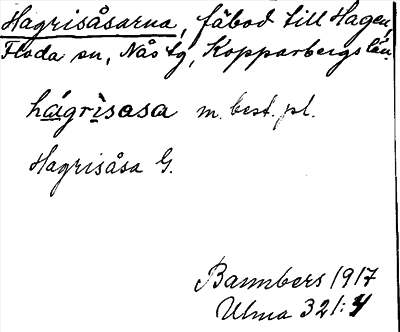 Hagrisåsarna, fäbod till Hagen,
Floda sn, Nås tg, Kopparbergs län.
hágrìsasa m. best. pl.
Hagrisåsa G.
Bannbers 1917
Ulma 321:4